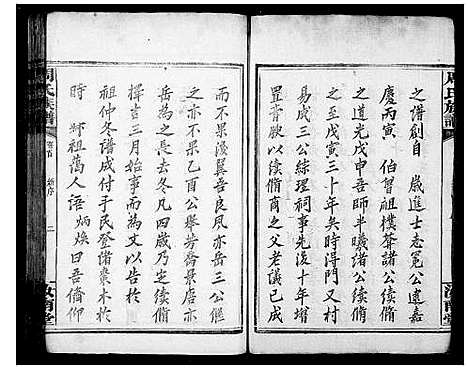 周氏族譜
之譜創自 歲進士卷冕公遠嘉
慶丙寅 伯曾祖樸聲諸公續脩
之道光戊申 師半曦諸公續脩
之至戊寅三十年矣時得門又村
易成三公綜理祠事先後十年增
置膏腴以續脩商之父老議已成
而不果淺翼吾良風亦岳三公繼
之亦不果乙酉公舉芳樹唐亦
岳為之長去冬凡四歲乃定續脩
擇吉三月始事而為文以告於
祖仲冬譜成付手民登諸棗木於
時 師祖蔼人語炳煥曰吾脩仰
周氏族譜
卷首
新序
二
汝南堂
汝南堂